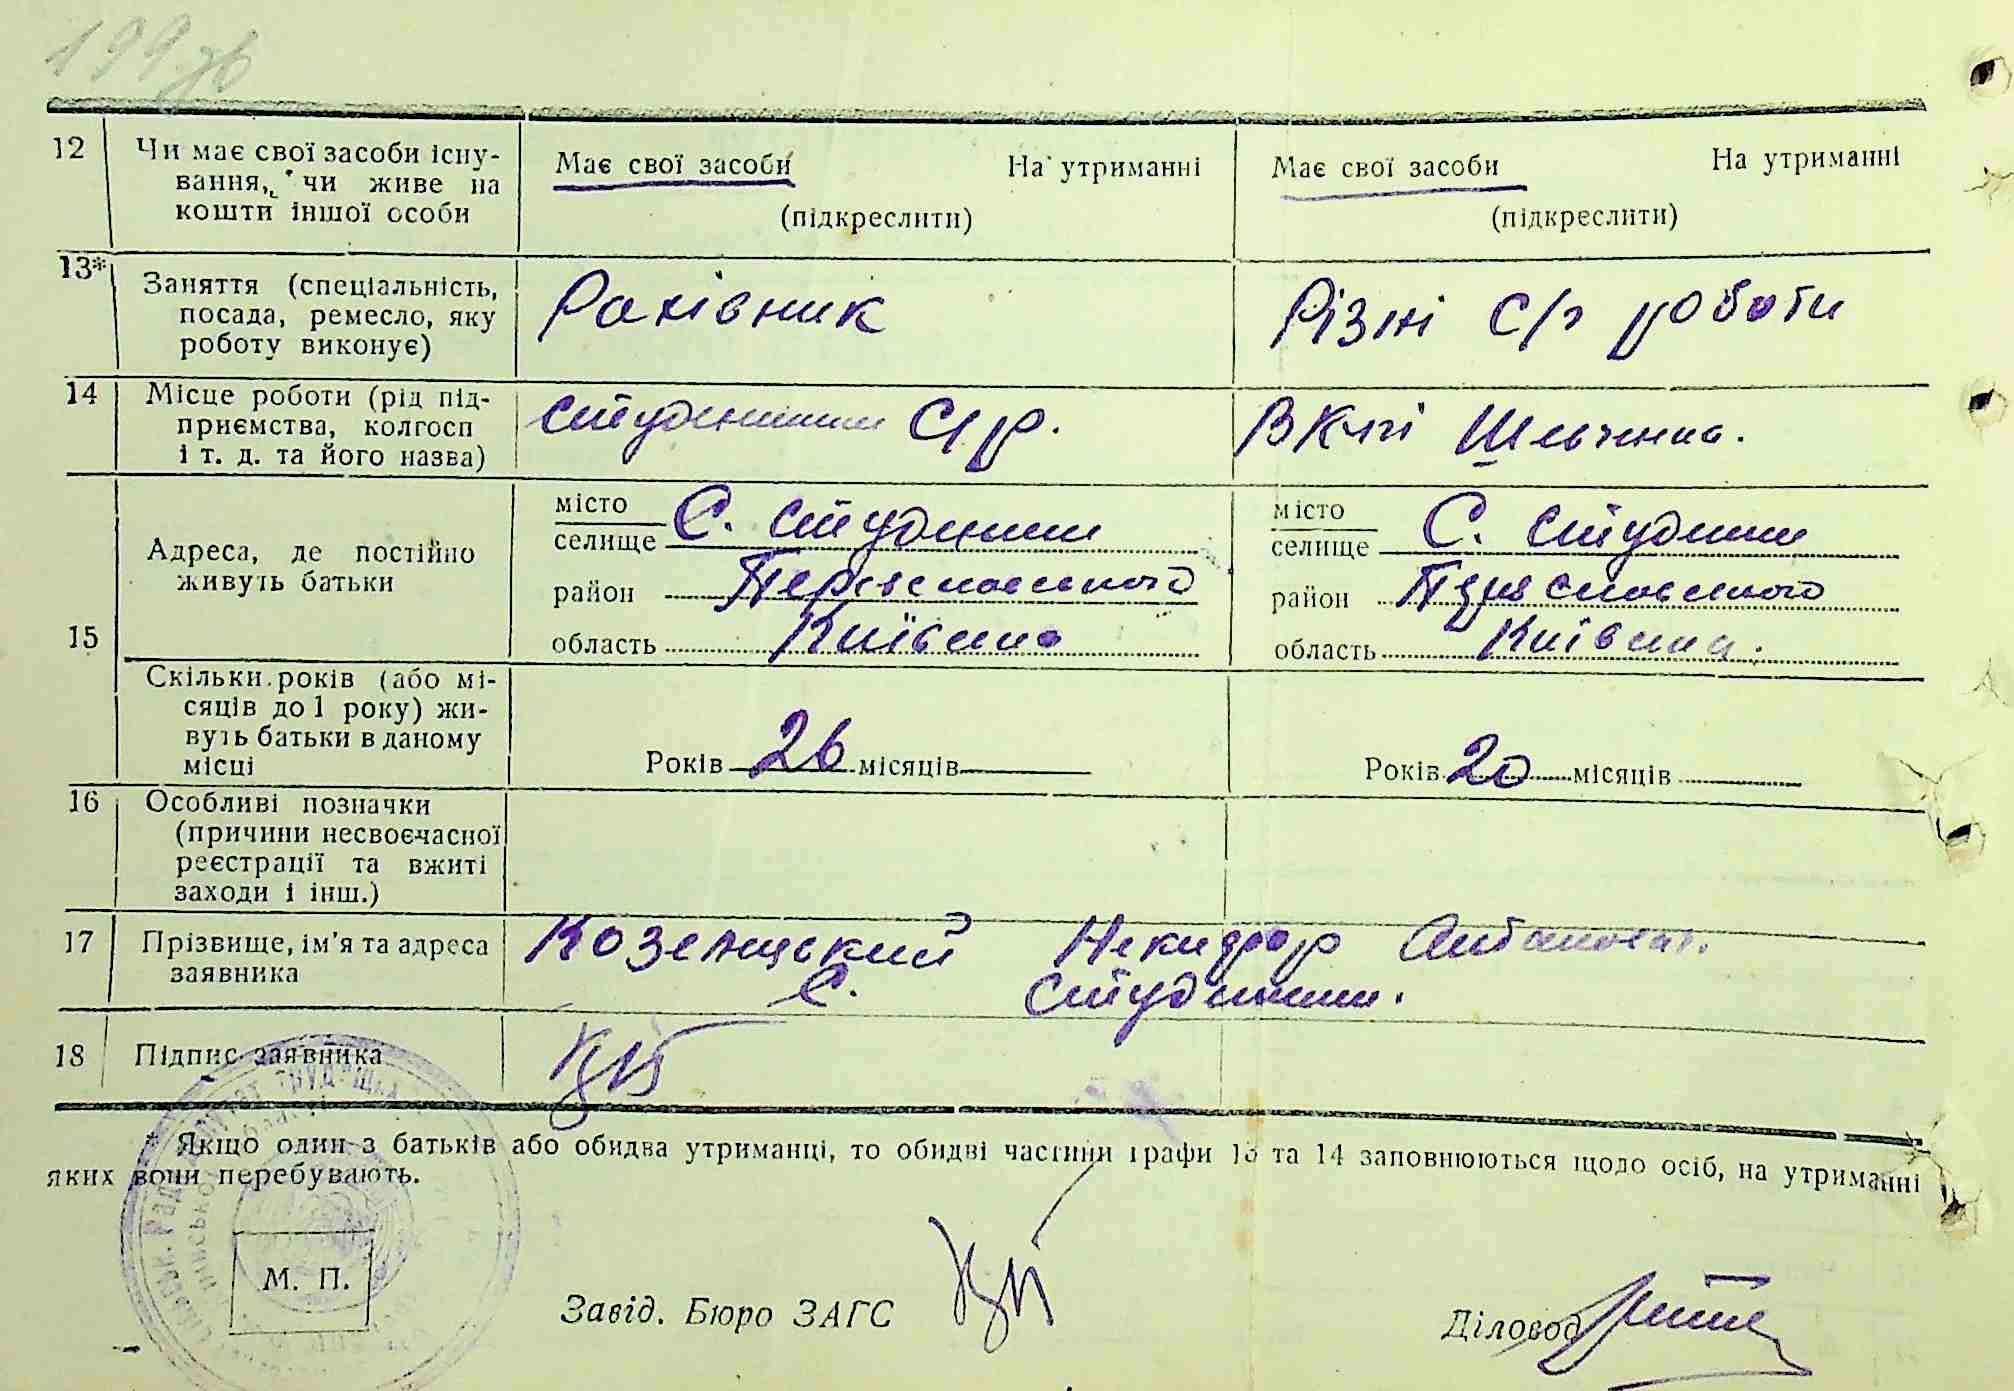 199зв
12 Чи має свої засоби існу-
вання, чи живе на
кошти іншої особи
Має свої засоби На утриманні
(підкреслити)
Має свої засоби На утриманні
(підкреслити)
13* Заняття (спеціальність,
посада, ремесло, яку
роботу виконує)
Рахівник
Різні с/г роботи
14 Місце роботи (рід під-
приємства, колгосп
і т. д. та його назва)
Студеники С/р.
В К-пі Шевченка.
15 Адреса, де постійно
живуть батьки
місто
селище С. Студеники
район Переяславського
область Київська
місто
селище С. Студеники
район Переяславського
область Київська.
Скільки років (або мі-
сяців до 1 року) жи-
вуть батьки в даному
місці
Років 26 місяців
Років 20 місяців
16 Особливі позначки
(причини несвоєчасної
реєстрації та вжиті
заходи і інш.)
17 Прізвище, ім'я та адреса
заявника
Козелецький Никифор
С. Студеники.
18 Підпис заявника
* Якщо один з батьків або обидва утриманці, то обидві частини графи 13 та 14 заповнюються щодо осіб, на утриманні
яких вони перебувають.
М. П.
Завід. Бюро ЗАГС
Діловод